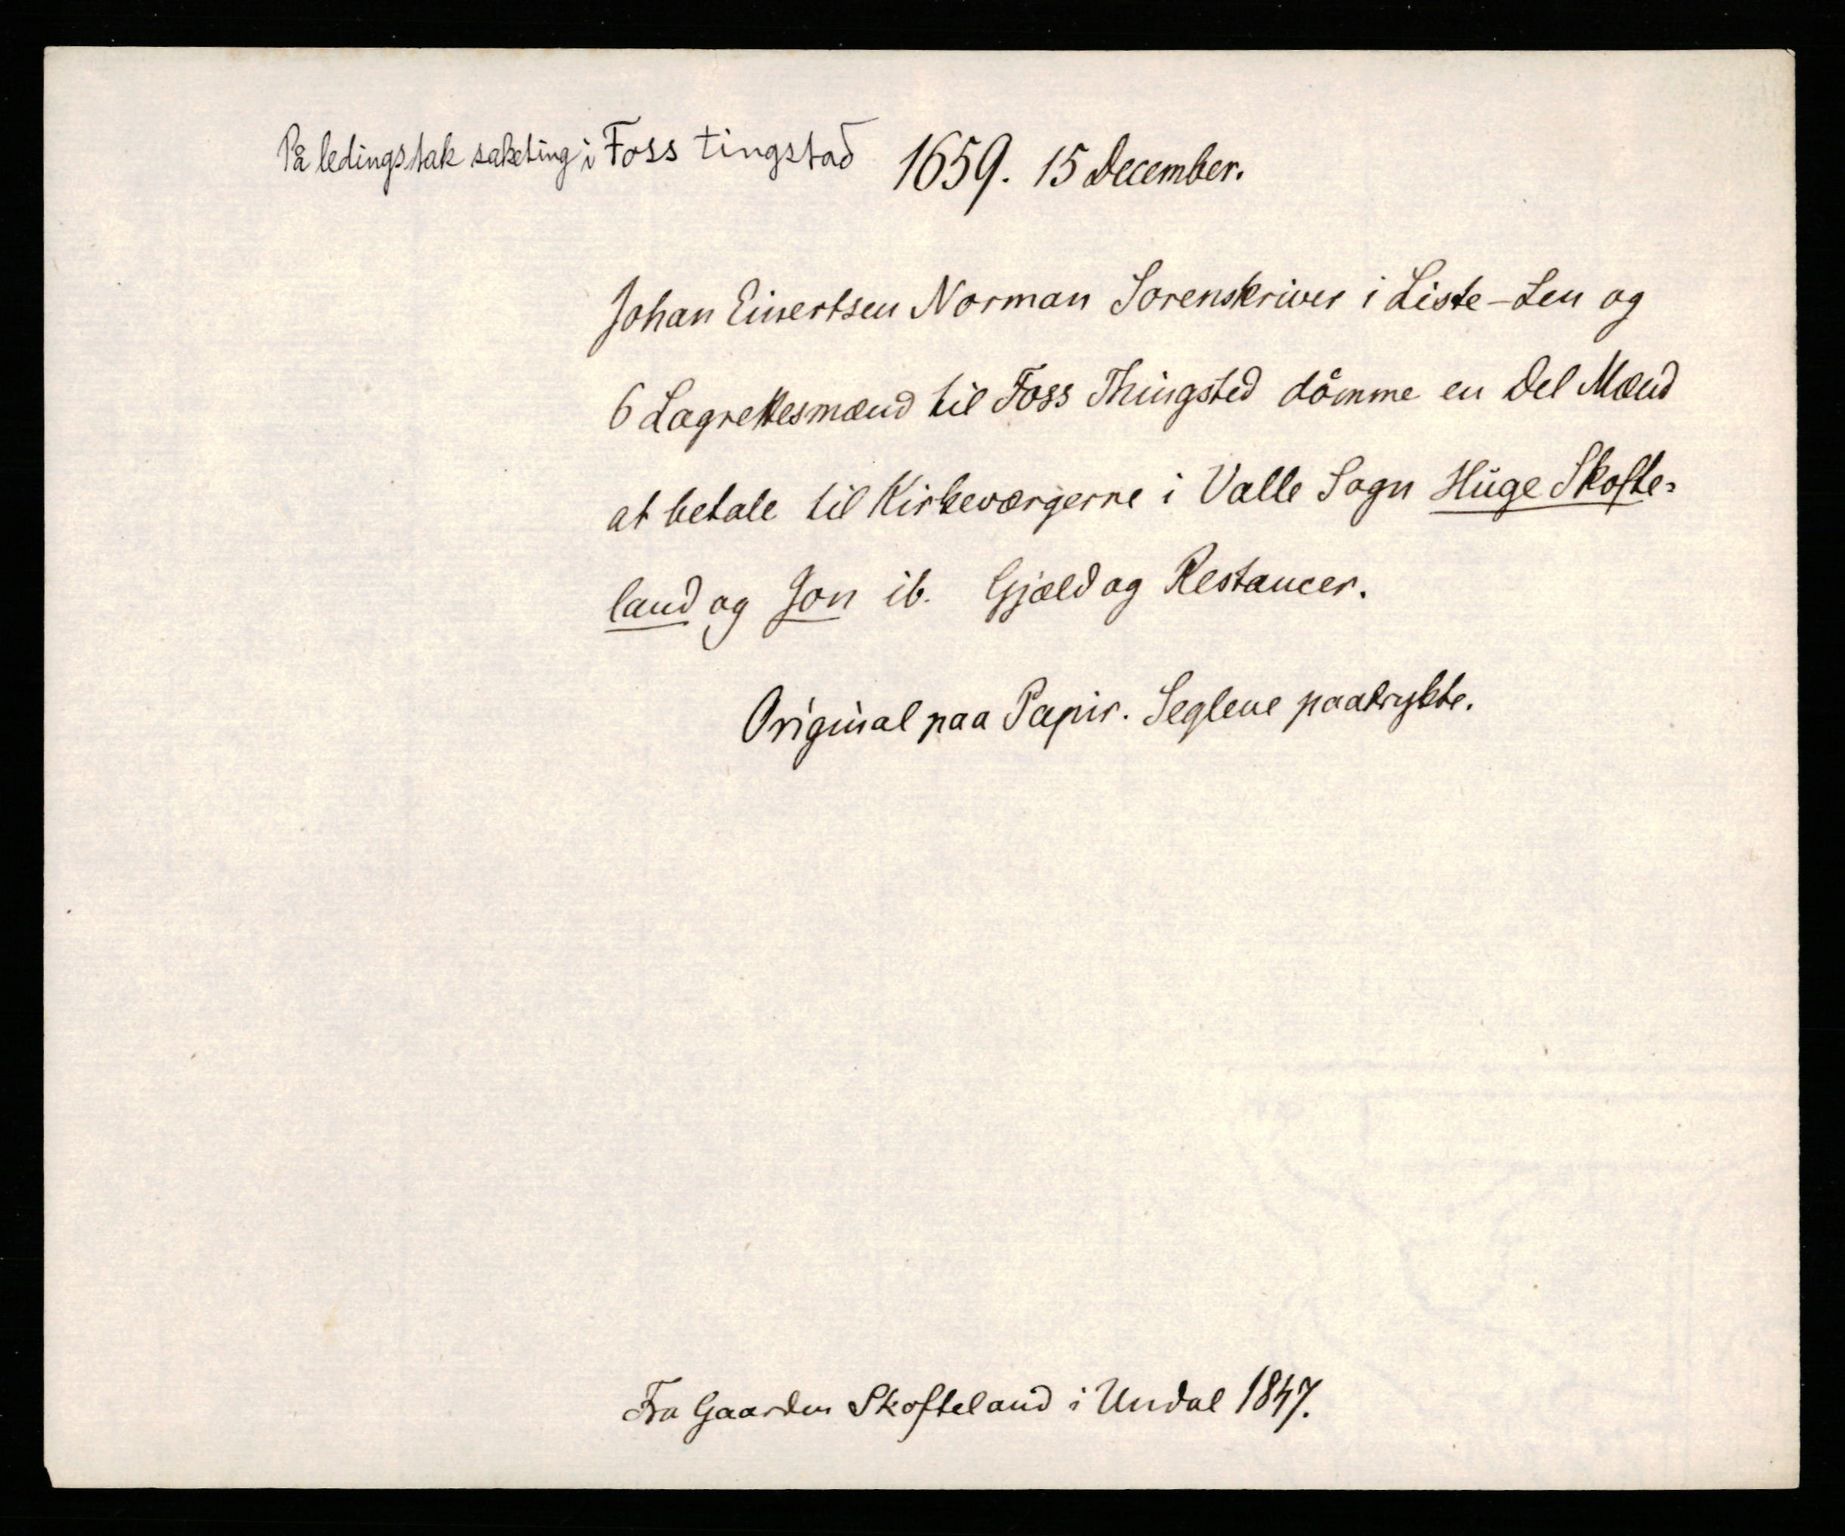 På ledingstak saketing i Foss tingstad 1659. 15 December.
Johan Einertsen Norman Sorenskriver i Liste-Len og
6 Lagrettesmænd til Foss Thingsted dömme en Del Mænd
at betale til Kirkeværgerne i Valle Sogn Huge Skofte-
land og Jon ib. Gjæld og Restancer.
Original paa Papir. Seglene paatrykte.
Fra Gaarden Skofteland i Undal 1847.